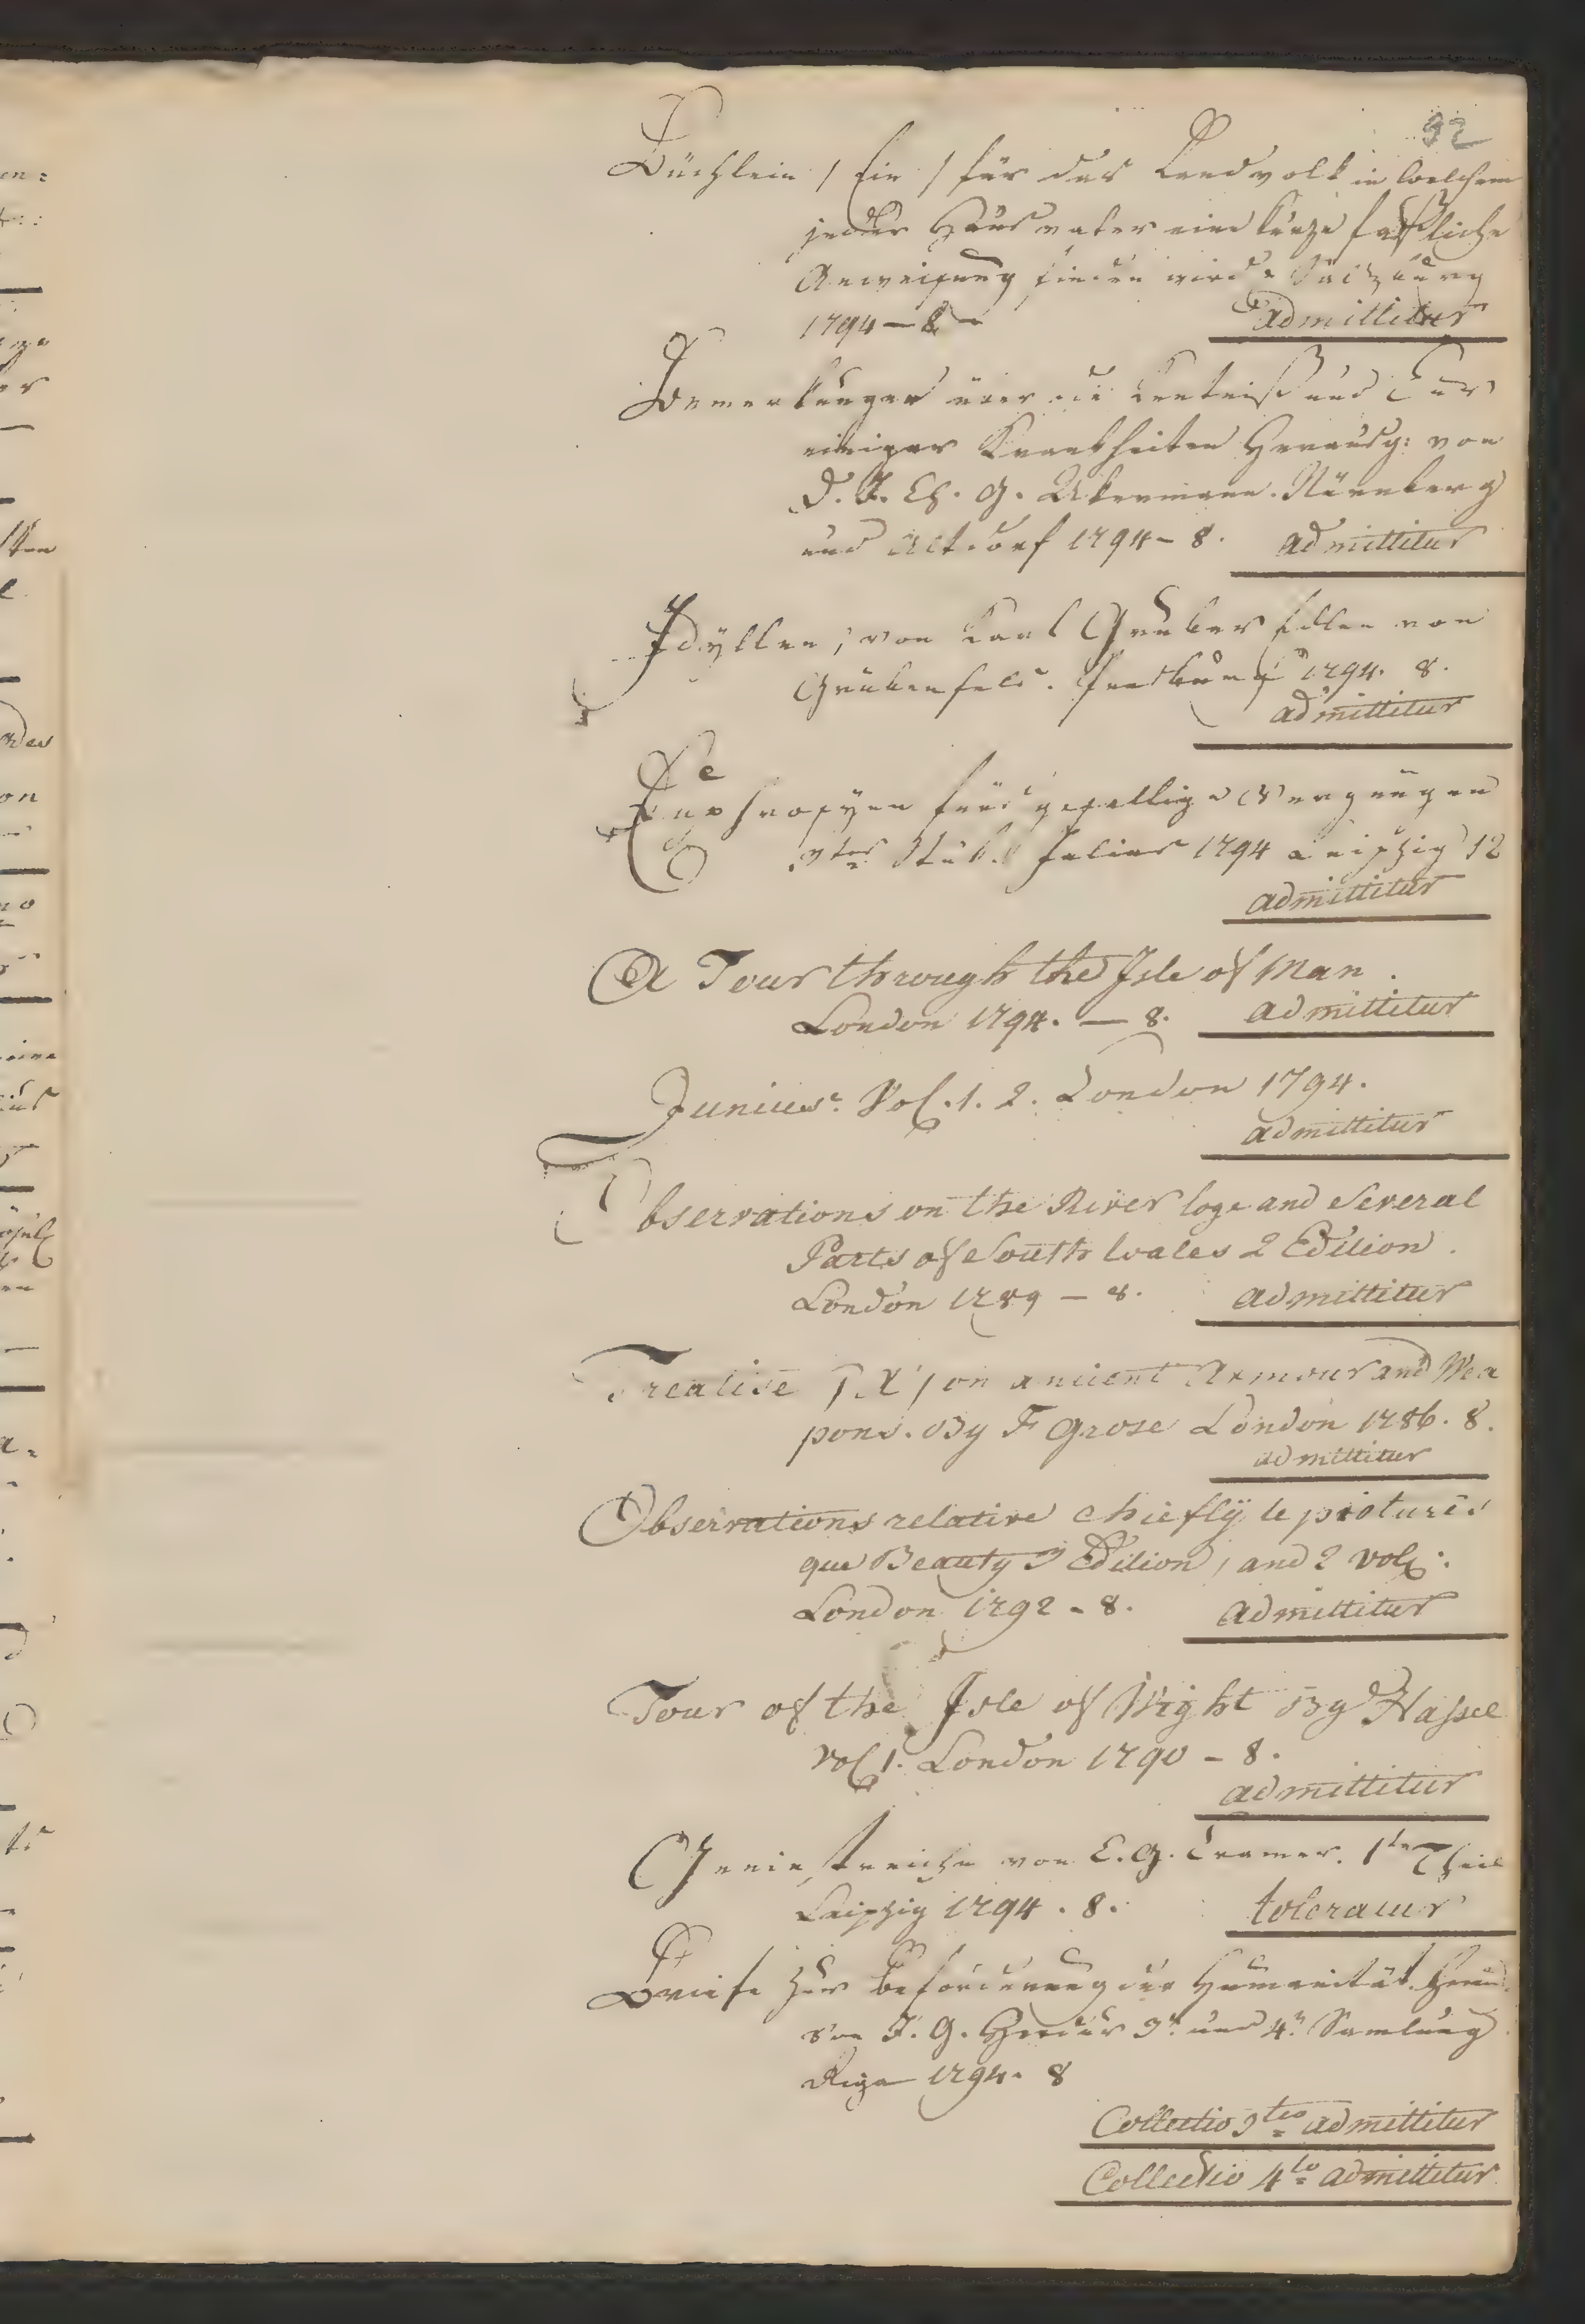 92
Büchlein / Ein / für das Landvolk in welchem
jeder Hausvater eine kurze faßliche
Anweisung finden wird. Salzburg
1794 — 8 admittitur
Bemerkungen über die Kentniß und Cur
einiger Krankheiten Herausg: von
D. J. Ch. G. Akermann. Nürnberg
und Altdorf 1794 – 8. admittitur
Idyllen, von Karl Gruber Edlen von
Grubenfels. 1794. 8.
admittitur
Euphrosyne fürs gesellige Vergnügen
Stük. Julius 1794 Leipzig 12
admittitur
A Tour through the Isle of Man.
London 1794. — 8. admittitur
Junius. Vol. 1. 2. London 1794.
admittitur
Observations on the River loge and Several
Parts of South wales 2 Edition.
London 1789 – 8. admittitur
Treatise / A / on ancient Armour and Wea
pons. By F Grose London 1786. 8.
admittitur
Observations relative chiefly te pictures
que Beauty 3 Edition, and 2 vol:
London 1792 – 8. admittitur
Tour of the Isle of Wight By Hassel
Vol 1. London 1790 – 8.
admittitur
Geniestreiche von C. G. Cramer. 1ter Theil
Leipzig 1794. 8. toleratur
Briefe zur Beförderung der Humanität. Herau
von J. G. Herder 3te und 4te Samlung
Riga 1794. 8
Collectio 3tio admittitur
Collectio 4to admittitur